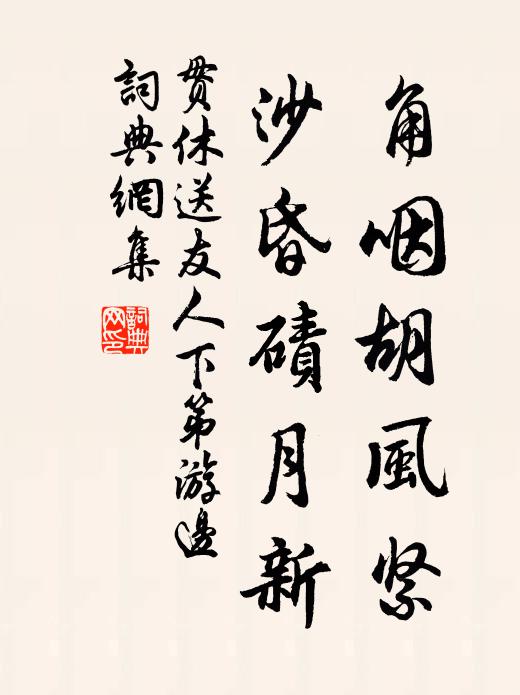 角咽胡風緊
沙昏磧月新
貫休送友人下第游邊
詞典網集
詞典网印